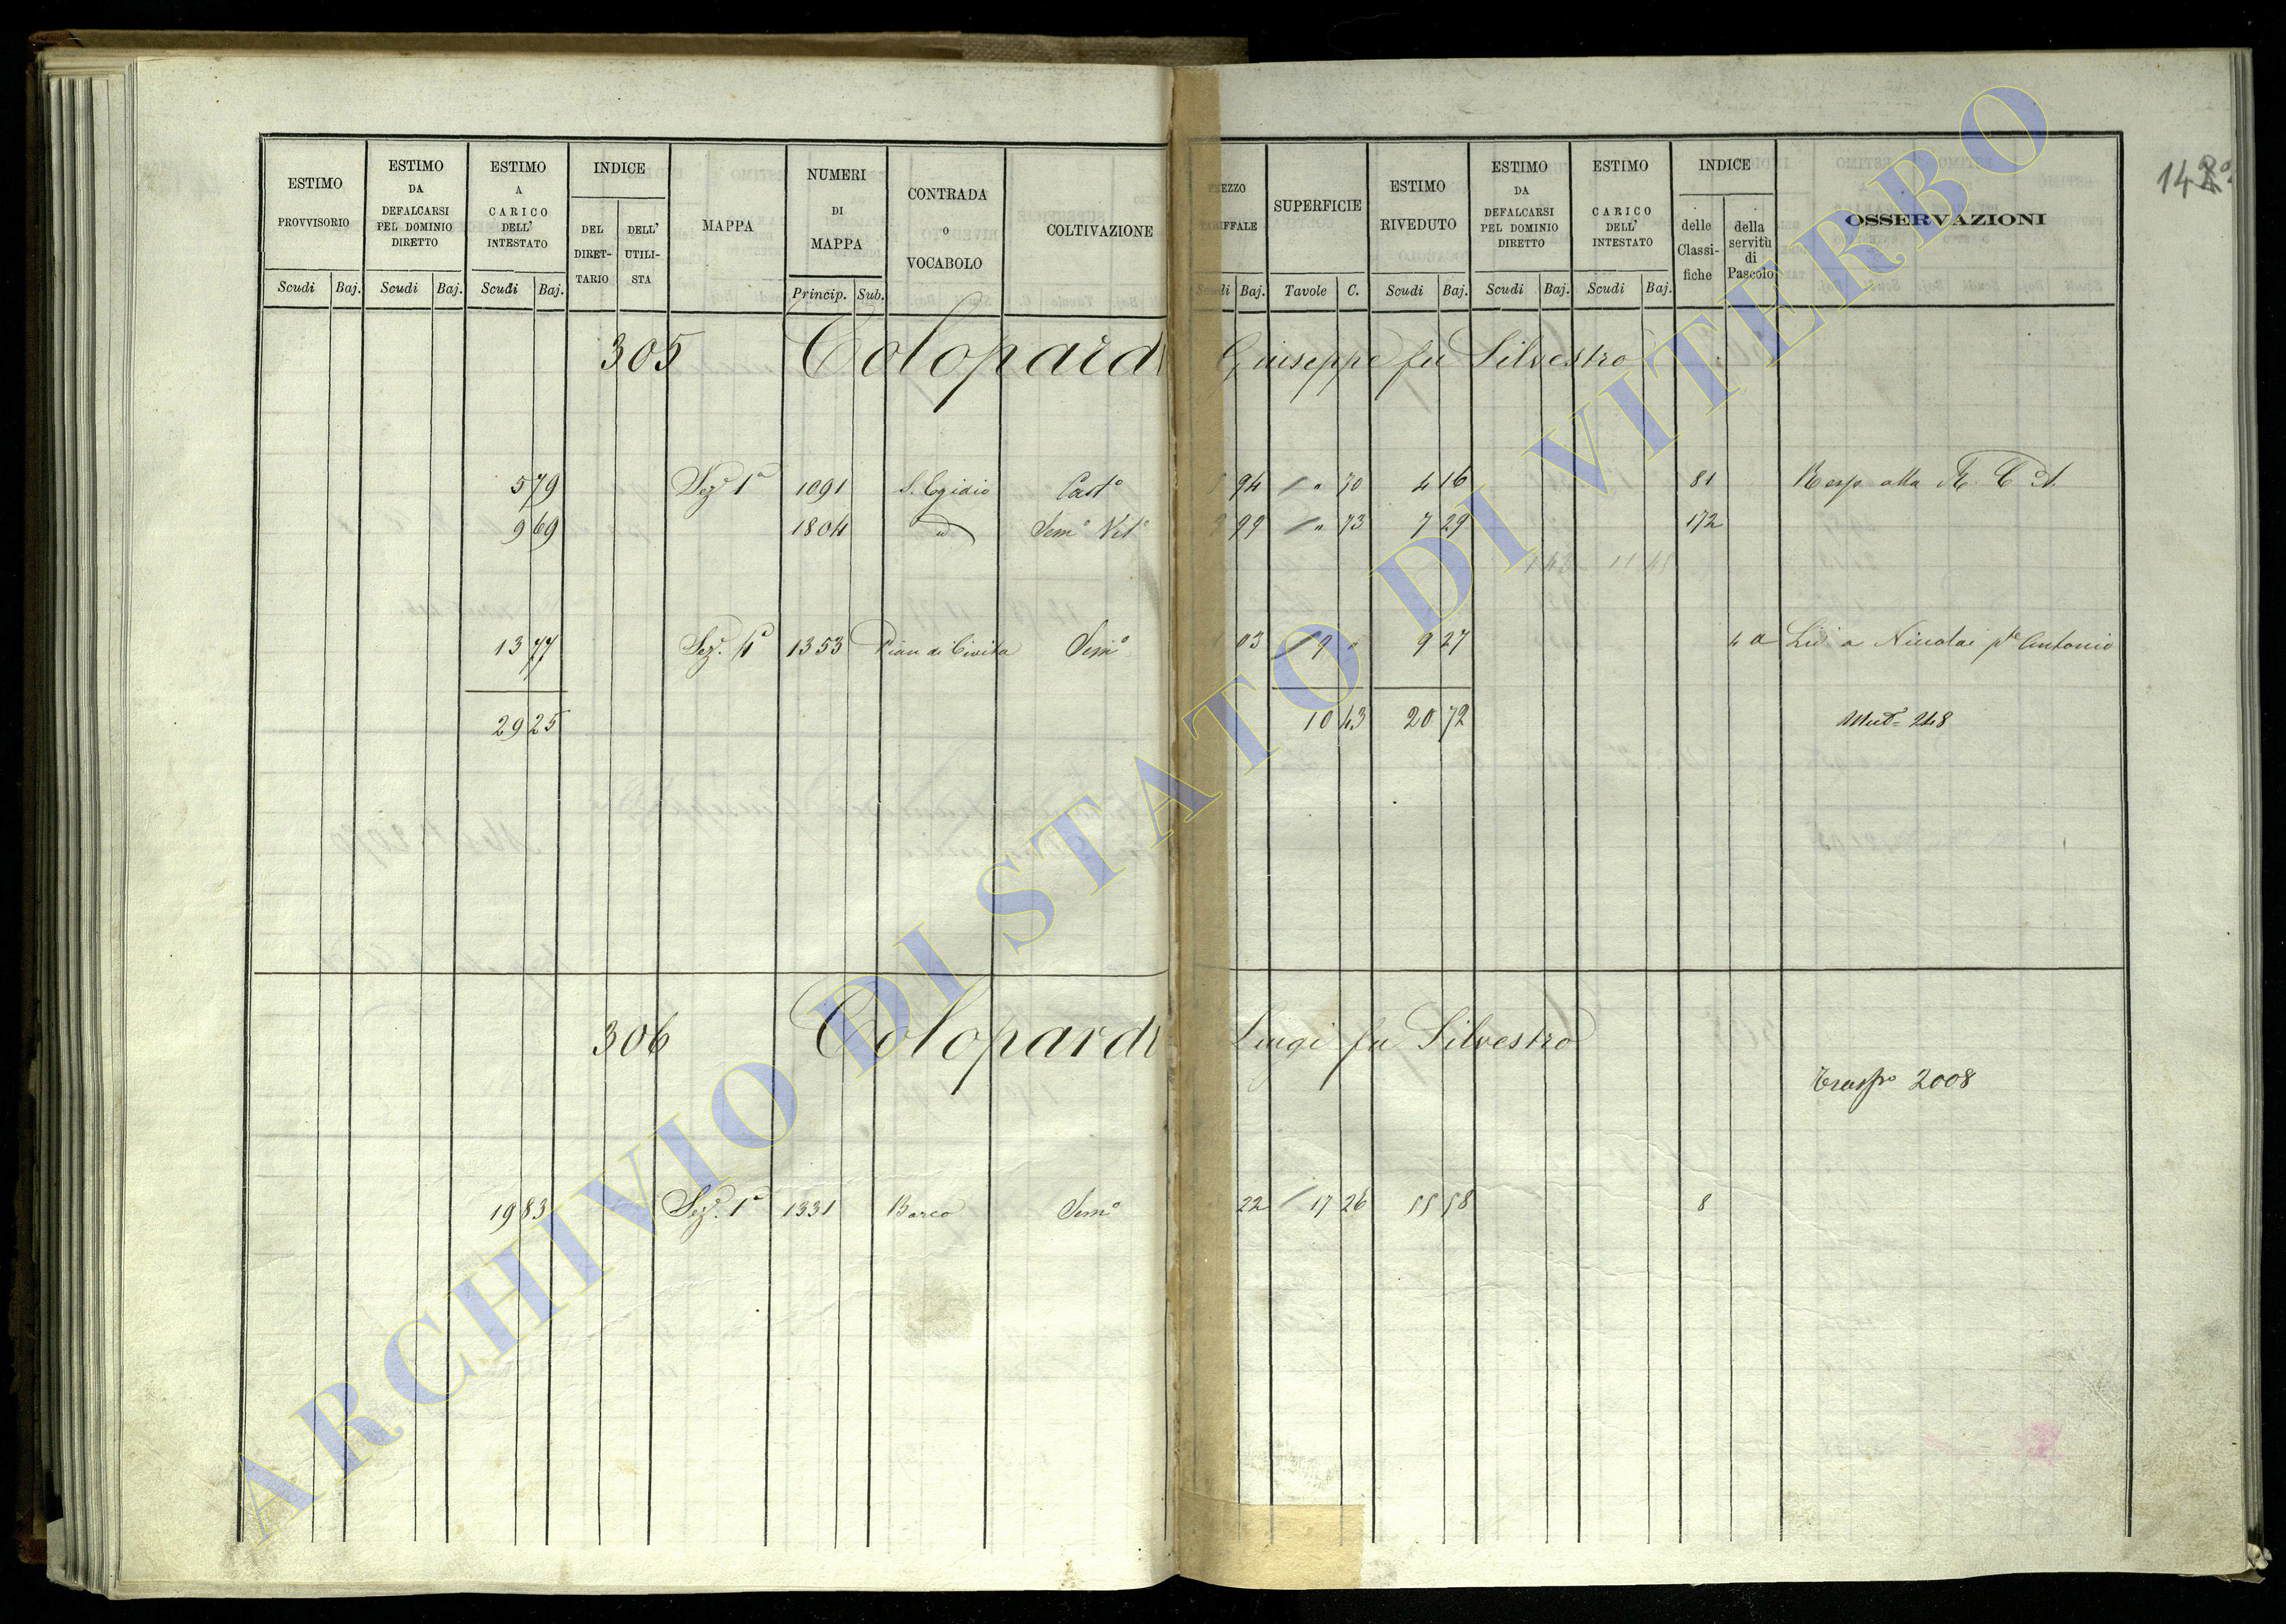 142
ESTIMO PROVVISORIO | ESTIMO DA DEFALCARSI PEL DOMINIO DIRETTO | ESTIMO A CARICO DELL' INTESTATO | INDICE DEL DIRET-TARIO | DELL' UTILI-STA | MAPPA | NUMERI DI MAPPA | CONTRADA O VOCABOLO | COLTIVAZIONE | PREZZO TARIFFALE | SUPERFICIE | ESTIMO RIVEDUTO | ESTIMO DA DEFALCARSI PEL DOMINIO DIRETTO | ESTIMO CARICO DELL' INTESTATO | INDICE delle Classi-fiche | della servitù di Pascolo | OSSERVAZIONI
Scudi | Baj. | Scudi | Baj. | Scudi | Baj. | Princip. | Sub. | Scudi | Baj. | Tavole | C. | Scudi | Baj. | Scudi | Baj. | Scudi | Baj.
305 Colopardi Giuseppe fu Silvestro
5 79 | Sez.e 1a | 1091 | S. Egidio | Casto | 94 | " 70 | 4 16 | 81 | Resp alla R. C. A.
9 69 | 1804 | id | Semo Vito | 99 | " 73 | 7 29 | 172
13 77 | Sez. 4a | 1353 | Pian di Civita | Semo | 03 | 9 " | 9 27 | 4 a | Liv a Nicolai pte Antonio
29 25 | 10 43 | 20 72 | Mut= 248
306 Colopardi Luigi fu Silvestro
Traspo 2008
19 83 | Sez. 1a | 1331 | Barco | Semo | 22 | 17 26 | 55 58 | 8
ARCHIVIO DI STATO DI VITERBO